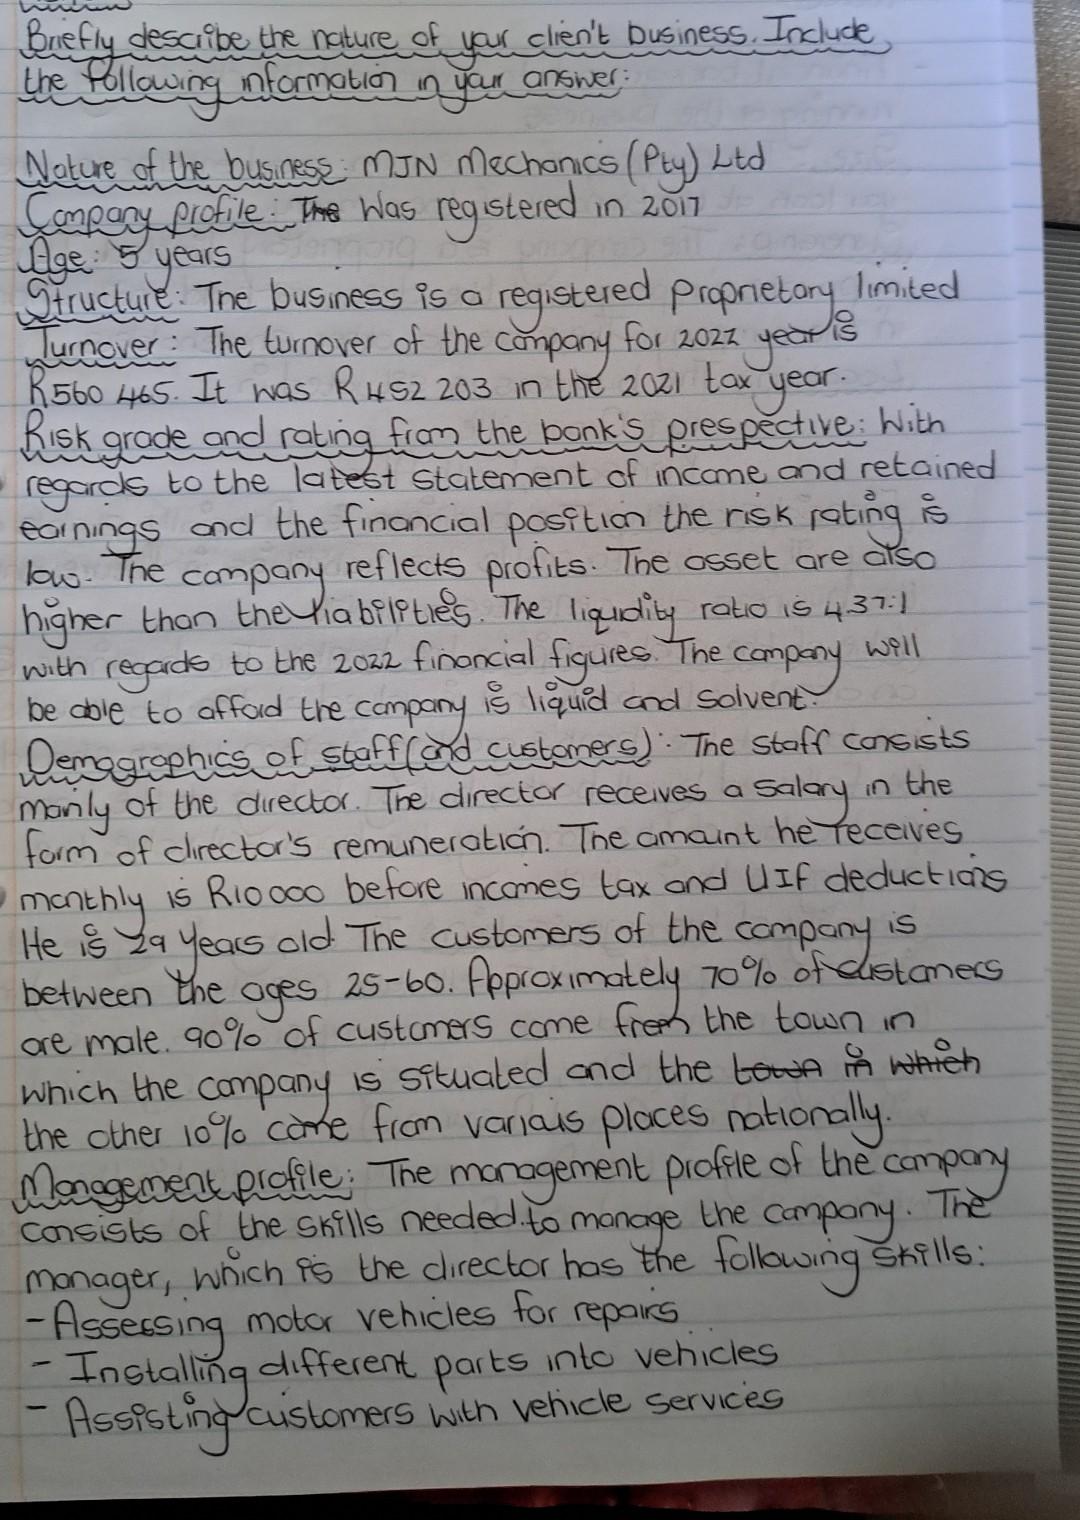 Briefly describe the nature of your clien't business. Include
the following information in your answer:
Nature of the business: MJN Mechanics (Pty) Ltd
Company profile: The Was registered in 2017
Age: 5 years
Structure: The business is a registered proprietary limited
Turnover: The turnover of the company for 2022 year is
R560 465. It was R452 203 in the 2021 tax year.
Risk grade and rating from the bank's prespective: With
regards to the latest statement of income and retained
earnings and the financial position the risk rating is
low. The company reflects profits. The asset are also
higher than the liabilities. The liquidity ratio is 4.37:1
with regards to the 2022 financial figures. The company will
be able to afford the company is liquid and solvent.
Demographics of staff (and customers): The staff consists
manly of the director. The director receives a salary in the
form of director's remuneration. The amount he receives
monthly is R10 000 before incomes tax and UIF deductions
He is 29 years old The customers of the company is
between the ages 25-60. Approximately 70% of customers
are male. 90% of customers come from the town in
which the company is situated and the town in which
the other 10% come from various places nationally.
Management profile: The management profile of the company
consists of the skills needed to manage the company. The
manager, which is the director has the following skills:
- Assessing motor vehicles for repairs
- Installing different parts into vehicles
- Assisting customers with vehicle services